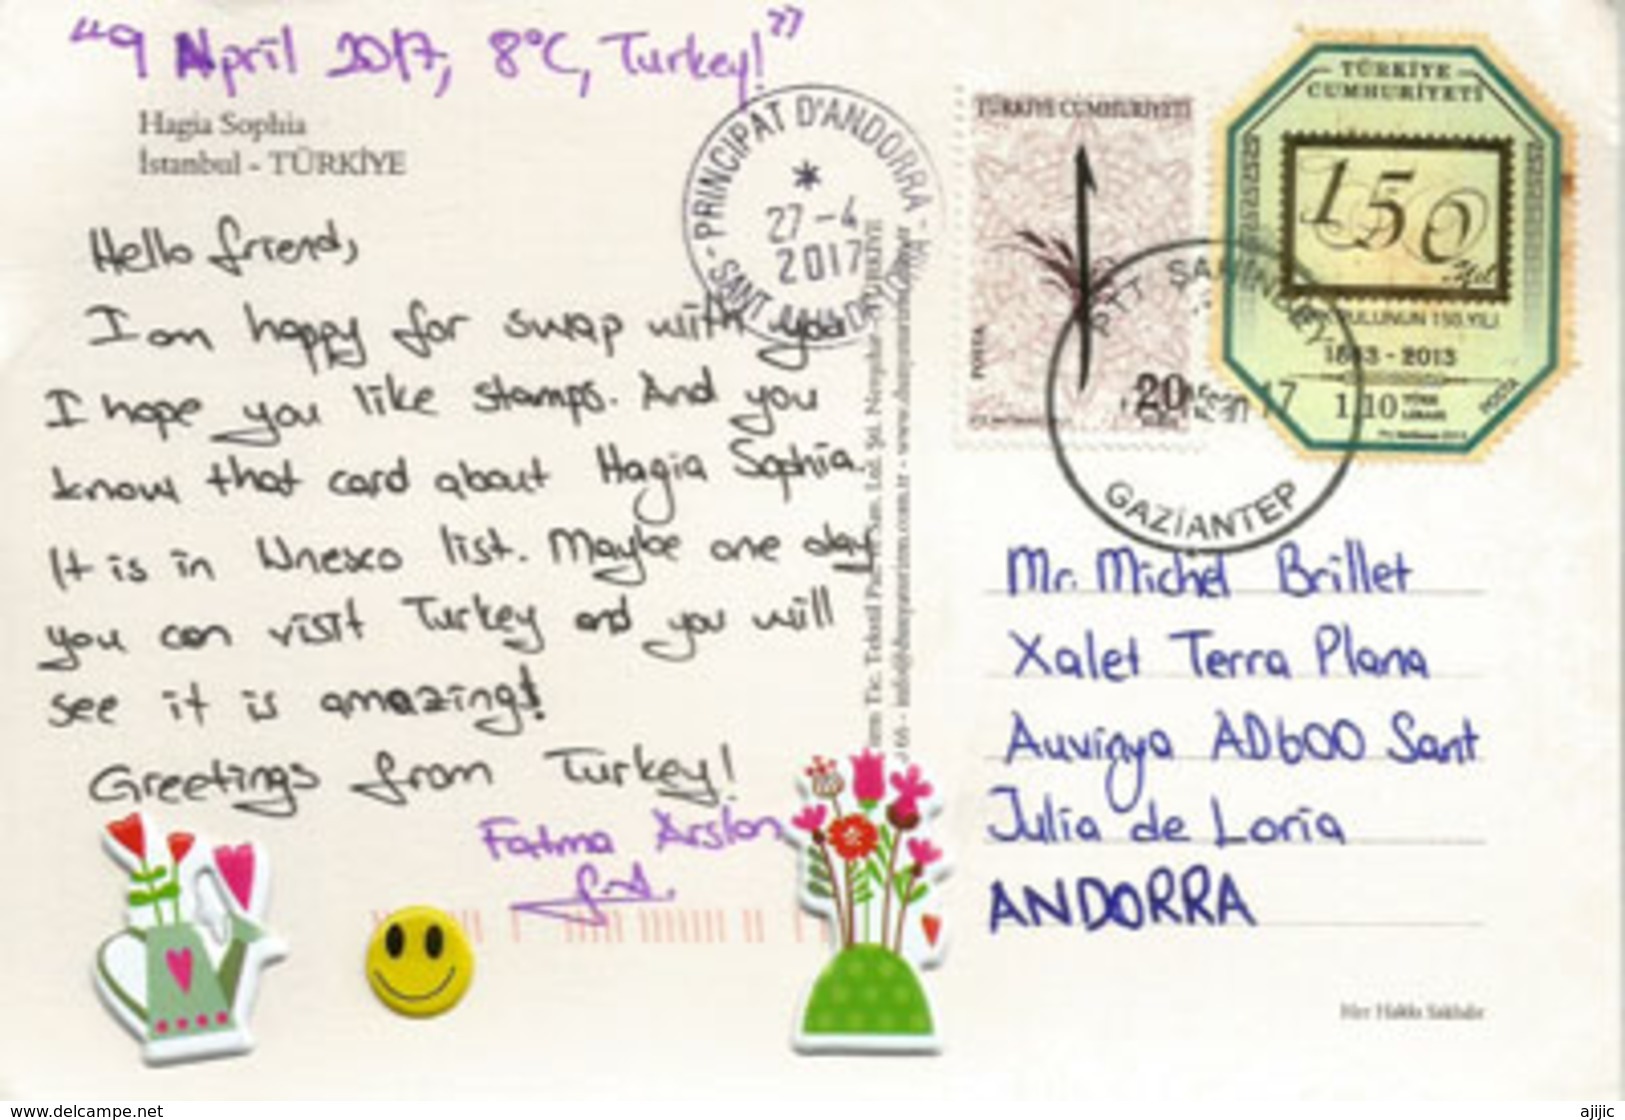 "9 April 2017, 8°C, Turkey!"
Hagia Sophia
İstanbul - TÜRKİYE
Hello friend,
I am happy for swap with you
I hope you like stamps. And you
know that card about Hagia Sophia.
It is in Unesco list. Maybe one day
you can visit Turkey and you will
see it is amazing!
Greetings from Turkey!
Fatma Arslan
PRINCIPAT D'ANDORRA
27-4
2017
SANT
TÜRKİYE CUMHURİYETİ
POSTA
20
TÜRKİYE
CUMHURİYETİ
150
Yıl
150. YILI
1863 - 2013
1.10 TÜRK
LİRASI
POSTA
PTT
17
GAZİANTEP
Mr. Michel Brillet
Xalet Terra Plana
Auvinya AD600 Sant
Julia de Loria
ANDORRA
Her Hakkı Saklıdır
www.delcampe.net
ajijic